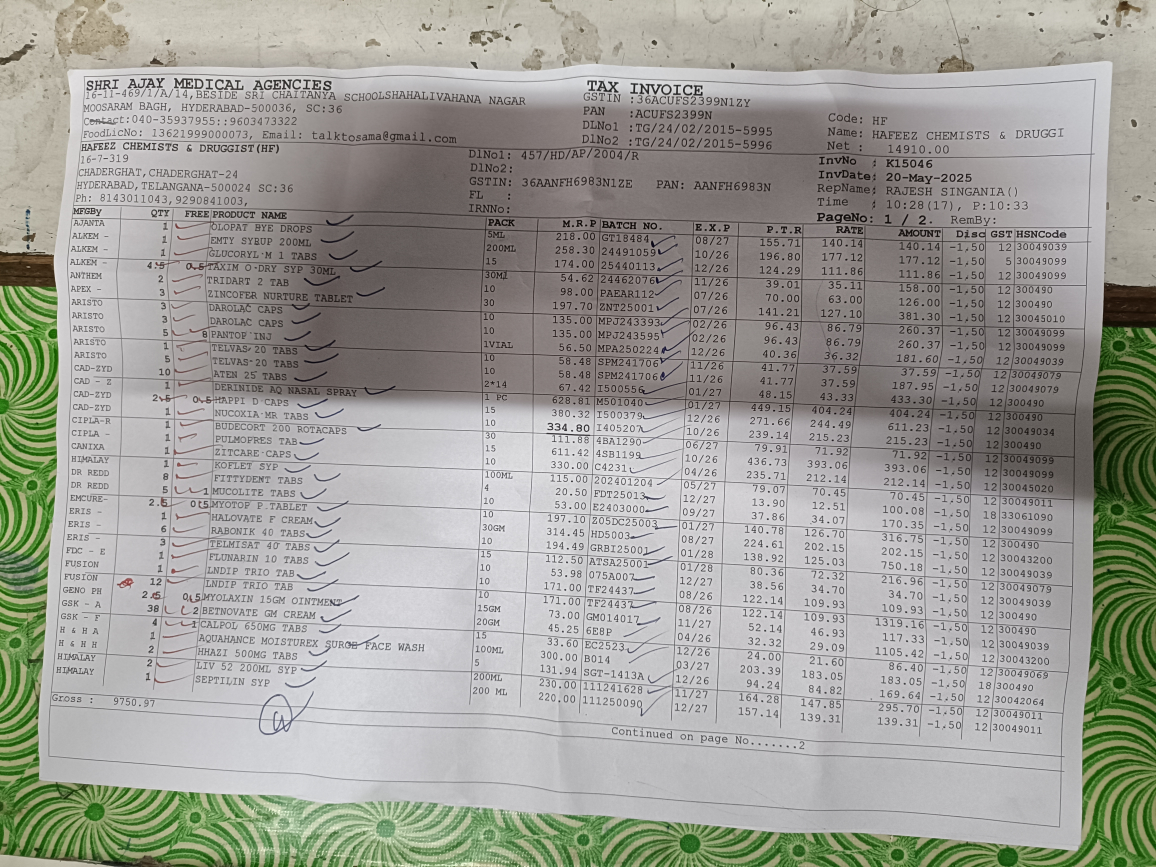 SHRI AJAY MEDICAL AGENCIES
16-11-469/1/A/14,BESIDE SRI CHAITANYA SCHOOLSHAHALIVAHANA NAGAR
MOOSARAM BAGH, HYDERABAD-500036, SC:36
Contact:040-35937955::9603473322
FoodLicNo: 13621999000073, Email: talktosama@gmail.com
TAX INVOICE
GSTIN :36ACUFS2399N1ZY
PAN :ACUFS2399N
DLNo1 :TG/24/02/2015-5995
DLNo2 :TG/24/02/2015-5996
Code: HF
Name: HAFEEZ CHEMISTS & DRUGGI
Net : 14910.00
HAFEEZ CHEMISTS & DRUGGIST(HF)
16-7-319
CHADERGHAT, CHADERGHAT-24
HYDERABAD,TELANGANA-500024 SC:36
Ph: 8143011043,9290841003,
DlNo1: 457/HD/AP/2004/R
DlNo2:
GSTIN: 36AANFH6983N1ZE PAN: AANFH6983N
FL :
IRNNo:
InvNo : K15046
InvDate: 20-May-2025
RepName: RAJESH SINGANIA()
Time : 10:28(17), P:10:33
PageNo: 1 / 2. RemBy:
MFGBy QTY FREE PRODUCT NAME PACK M.R.P BATCH NO. E.X.P P.T.R RATE AMOUNT Disc GST HSNCode
AJANTA 1 OLOPAT BYE DROPS 5ML 218.00 GT18484 08/27 155.71 140.14 140.14 -1.50 12 30049039
ALKEM - 1 EMTY SYBUP 200ML 200ML 258.30 24491059 10/26 196.80 177.12 177.12 -1.50 5 30049099
ALKEM - 1 GLUCORYL-M 1 TABS 15 174.00 25440113 12/26 124.29 111.86 111.86 -1.50 12 30049099
ALKEM - 4.5 0.5 TAXIM O-DRY SYP 30ML 30Ml 54.62 24462076 11/26 39.01 35.11 158.00 -1.50 12 300490
ANTHEM 2 TRIDART 2 TAB 10 98.00 PAEAR112 07/26 70.00 63.00 126.00 -1.50 12 300490
APEX - 3 ZINCOFER NURTURE TABLET 30 197.70 ZNT25001 07/26 141.21 127.10 381.30 -1.50 12 30045010
ARISTO 3 DAROLAC CAPS 10 135.00 MPJ243393 02/26 96.43 86.79 260.37 -1.50 12 30049099
ARISTO 3 DAROLAC CAPS 10 135.00 MPJ243595 02/26 96.43 86.79 260.37 -1.50 12 30049099
ARISTO 5 8 PANTOP INJ 1VIAL 56.50 MPA250224 12/26 40.36 36.32 181.60 -1.50 12 30049039
ARISTO 1 TELVAS-20 TABS 10 58.48 SPM241706 11/26 41.77 37.59 37.59 -1.50 12 30049079
ARISTO 5 TELVAS-20 TABS 10 58.48 SPM241706 11/26 41.77 37.59 187.95 -1.50 12 30049079
CAD-ZYD 10 ATEN 25 TABS 2*14 67.42 I500556 01/27 48.15 43.33 433.30 -1.50 12 300490
CAD - Z 1 DERINIDE AQ NASAL SPRAY 1 PC 628.81 M501040 01/27 449.15 404.24 404.24 -1.50 12 300490
CAD-ZYD 2.5 0.5 HAPPI D CAPS 15 380.32 I500379 12/26 271.66 244.49 611.23 -1.50 12 30049034
CAD-ZYD 1 NUCOXIA-MR TABS 10 334.80 I405207 10/26 239.14 215.23 215.23 -1.50 12 300490
CIPLA-R 1 BUDECORT 200 ROTACAPS 30 111.88 4BA1290 06/27 79.91 71.92 71.92 -1.50 12 30049099
CIPLA - 1 PULMOPRES TAB 10 611.42 4SB1199 10/26 436.73 393.06 393.06 -1.50 12 30049099
CANIXA 1 ZITCARE-CAPS 10 330.00 C4231 04/26 235.71 212.14 212.14 -1.50 12 30045020
HIMALAY 1 KOFLET SYP 100ML 115.00 202401204 05/27 79.07 70.45 70.45 -1.50 12 30049011
DR REDD 8 FITTYDENT TABS 4 20.50 FDT25013 12/27 13.90 12.51 100.08 -1.50 18 33061090
DR REDD 5 1 MUCOLITE TABS 10 53.00 E2403000 09/27 37.86 34.07 170.35 -1.50 12 30049099
EMCURE- 2.5 0.5 MYOTOP P.TABLET 10 197.10 Z05DC25003 01/27 140.78 126.70 316.75 -1.50 12 300490
ERIS - 1 HALOVATE F CREAM 30GM 314.45 HD5003 08/27 224.61 202.15 202.15 -1.50 12 30043200
ERIS - 6 RABONIK 40 TABS 10 194.49 GRBI25001 01/28 138.92 125.03 750.18 -1.50 12 30049039
ERIS - 3 TELMISAT 40 TABS 15 112.50 ATSA25001 01/28 80.36 72.32 216.96 -1.50 12 30049079
FDC - E 1 FLUNARIN 10 TABS 10 53.98 075A007 12/27 38.56 34.70 34.70 -1.50 12 30049039
FUSION 1 LNDIP TRIO TAB 10 171.00 TF24437 08/26 122.14 109.93 109.93 -1.50 12 300490
FUSION 12 LNDIP TRIO TAB 10 171.00 TF24437 08/26 122.14 109.93 1319.16 -1.50 12 300490
GENO PH 2.5 0.5 MYOLAXIN 15GM OINTMENT 15GM 73.00 GM014017 11/27 52.14 46.93 117.33 -1.50 12 30049039
GSK - A 38 2 BETNOVATE GM CREAM 20GM 45.25 6E8P 04/26 32.32 29.09 1105.42 -1.50 12 30043200
GSK - F 4 1 CALPOL 650MG TABS 15 33.60 EC2523 12/26 24.00 21.60 86.40 -1.50 12 30049069
H & H A 1 AQUAHANCE MOISTUREX SURGE FACE WASH 100ML 300.00 B014 03/27 203.39 183.05 183.05 -1.50 18 300490
H & H H 2 HHAZI 500MG TABS 5 131.94 SGT-1413A 12/26 94.24 84.82 169.64 -1.50 12 30042064
HIMALAY 2 LIV 52 200ML SYP 200ML 230.00 111241628 11/27 164.28 147.85 295.70 -1.50 12 30049011
HIMALAY 1 SEPTILIN SYP 200 ML 220.00 111250090 12/27 157.14 139.31 139.31 -1.50 12 30049011
Gross : 9750.97
Continued on page No.......2